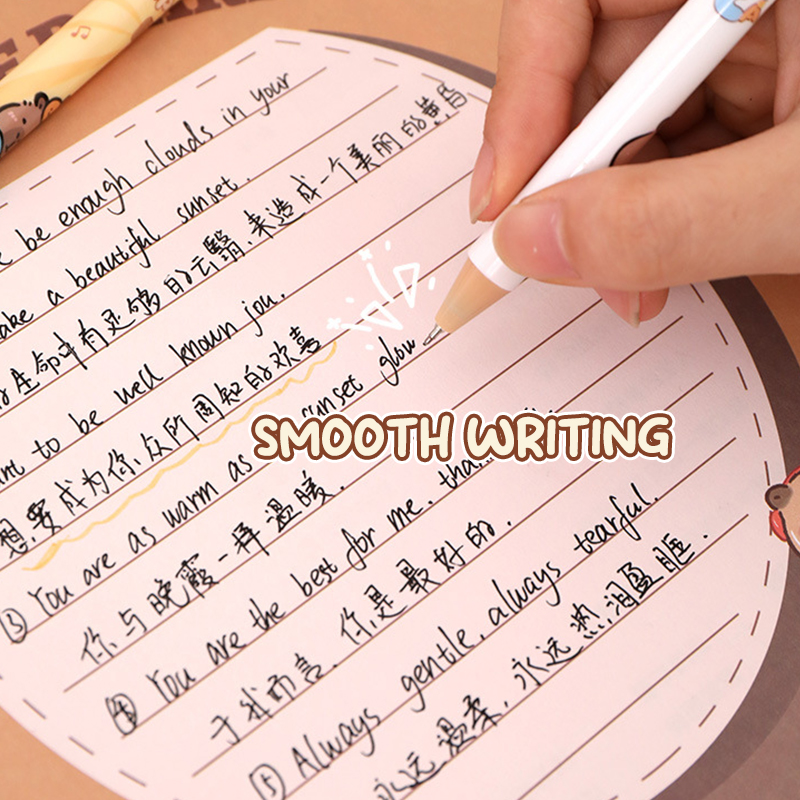 be enough clouds in your
ake a beautiful sunset.
生命中有足够的云翳,来造成一个美丽的黄昏
to be well known jou.
想要成为你众所周知的欢喜
③ You are as warm as sunset glow
SMOOTH WRITING
你与晚霞一样温暖.
④ You are the best for me. tha
于我而言,你是最好的.
⑤ Always gentle, always tearful.
永远温柔,永远热泪盈眶.